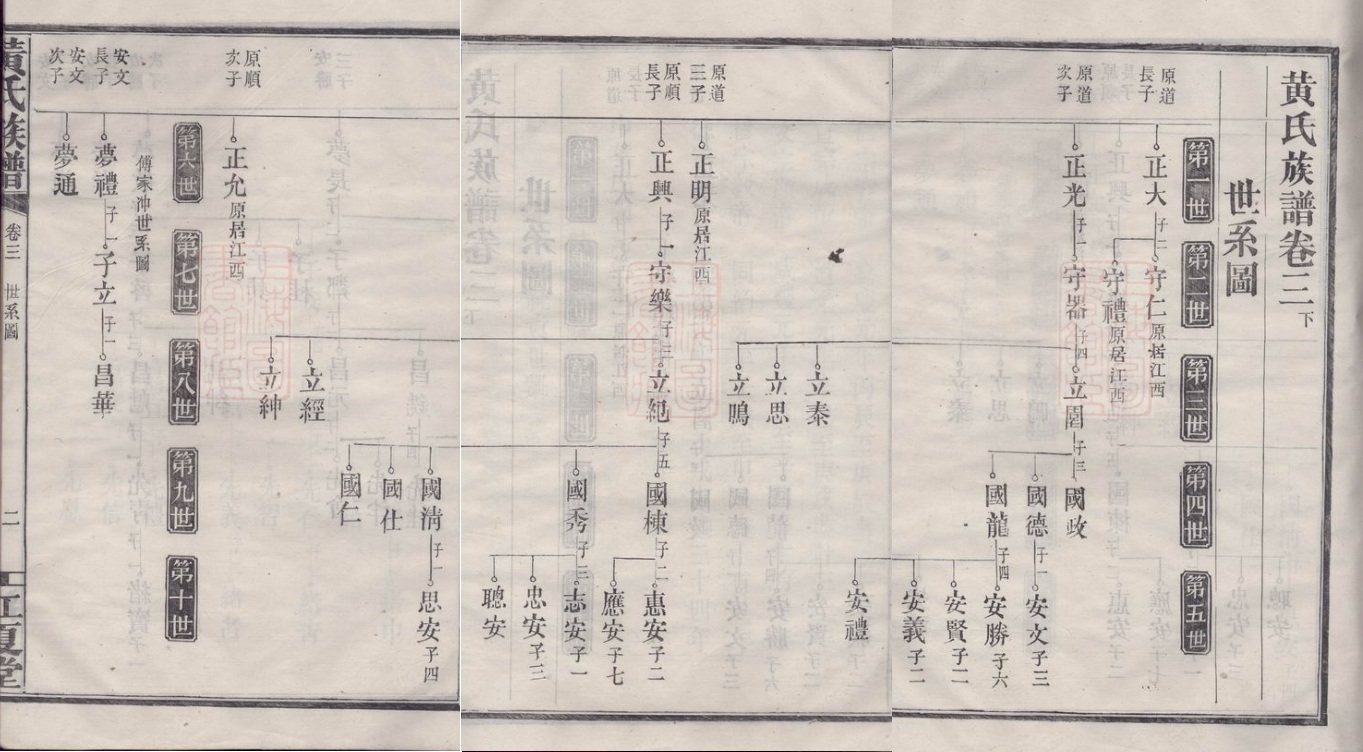 黃氏族譜卷三下
世系圖
第一世
第二世
第三世
第四世
第五世
原道
長子
正大
子二
守仁原居江西
守禮原居江西
原道
次子
正光
子一
守器
子四
立圍
子三
國政
國德
子一
安文子三
國龍
子四
安勝子六
安賢子二
安義子二
安禮
立泰
立思
立鳴
原道
三子
正明原居江西
原順
長子
正興
子一
守樂
子三
立紀
子五
國棟
子二
惠安子二
應安子七
國秀
子三
志安子一
忠安子三
聰安
立經
立紳
國清
子一
思安子四
國仕
國仁
原順
次子
正允原居江西
第六世
第七世
第八世
第九世
第十世
傅家沖世系圖
安文
長子
夢禮
子一
子立
子一
昌華
安文
次子
夢通
黃氏族譜
卷三
世系圖
二
江夏堂